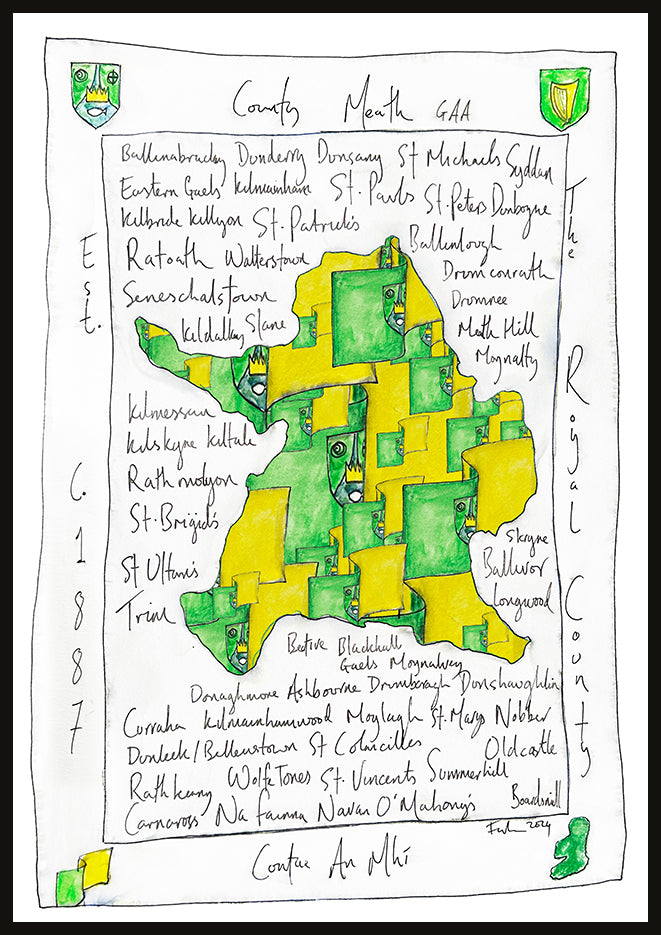 County Meath GAA
Ballinabrackey Dunderry Dunsany St Michaels Syddan
Eastern Gaels Kilmainham St. Pauls St. Peters Dunboyne
Kilbride Killyon St. Patrick's
Ballinlough
Ratoath Walterstown
Drumconrath
Seneschalstown
Drumree
Kildalkey Slane
Meath Hill
Moynalty
Kilmessan
Kilskyre Kiltale
Rathmolyon
St. Brigid's
St Ultan's
Trim
Skryne
Ballivor
Longwood
Bective Blackhall
Gaels Moynalvey
Donaghmore Ashbourne Drumbaragh Dunshaughlin
Curraha Kilmainhamwood Moylagh St. Marys Nobber
Duleek/Bellewstown St Colmcilles Oldcastle
Rathkenny Wolfe Tones St. Vincents Summerhill
Boardsmill
Carnaross Na Fianna Navan O'Mahony's
2024
Est. C. 1887
The Royal County
Contae An Mhí